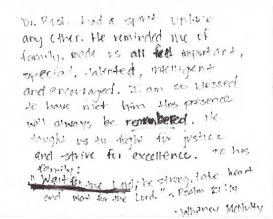 Dr. Rish had a spirit unlike
any other. He reminded me of
family, made us all feel important,
special, talented, intelligent
and encouraged. I am so blessed
to have met him. His presence
will always be remembered. He
taught us to fight for justice
and strive for excellence. To his
family:
"Wait for the Lord; be strong, take heart
and wait for the Lord." - Psalm 27:14
- Whitney McNulty